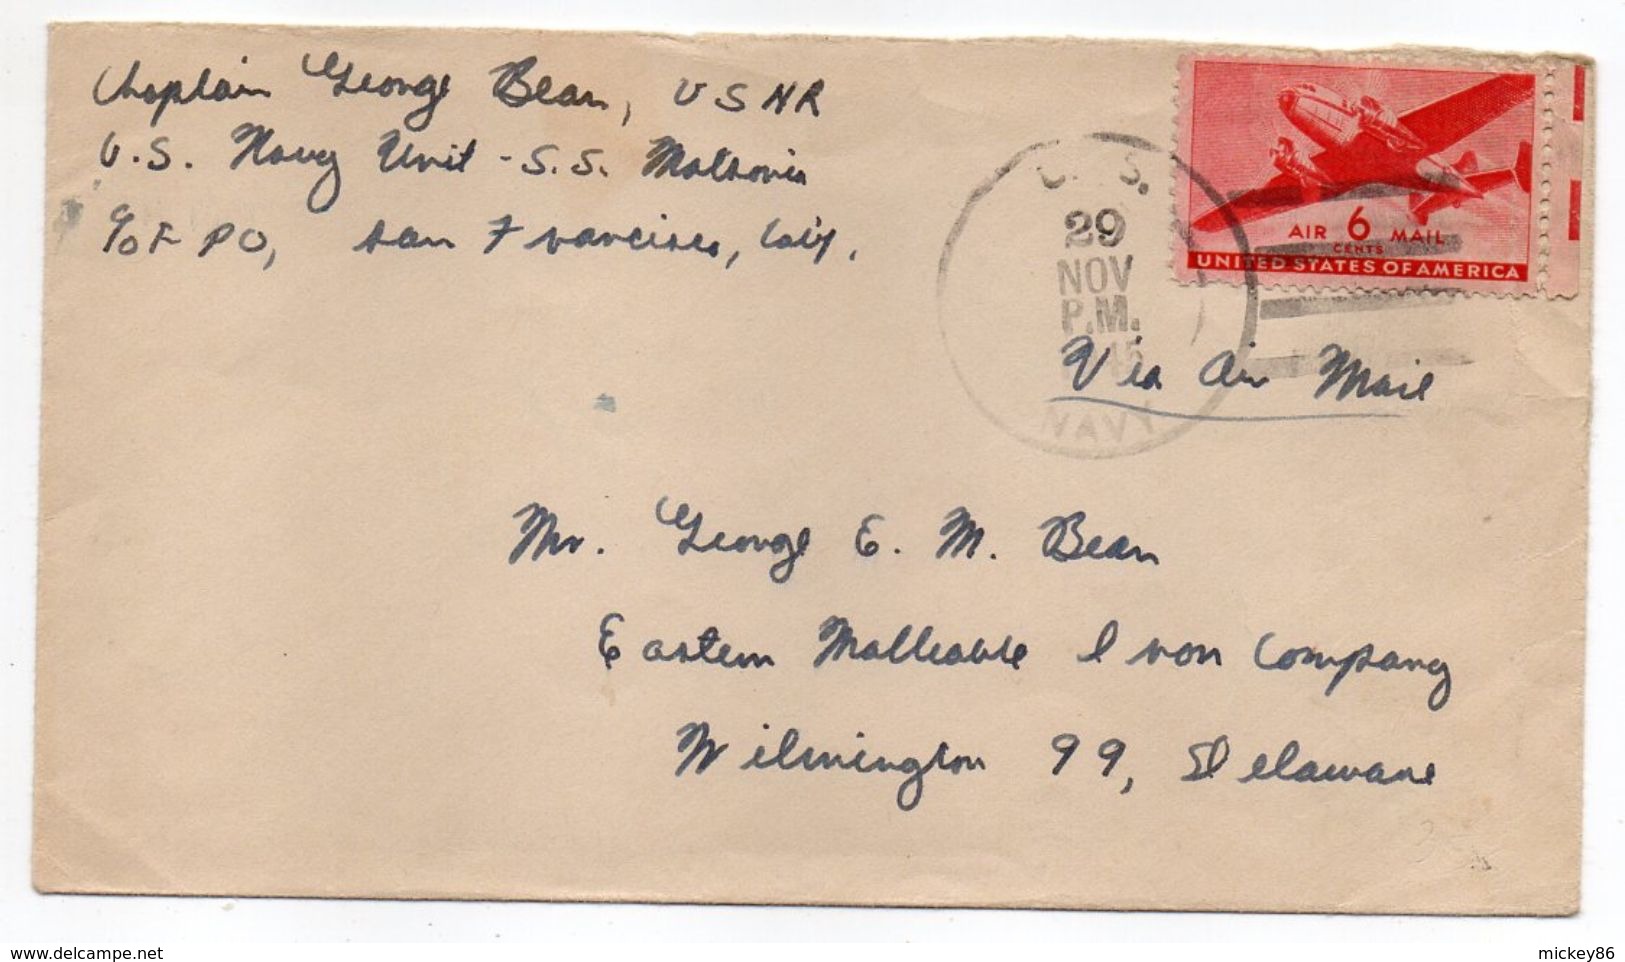 Chaplain George Bean, USNR
U.S. Navy Unit - S.S. Matsonia
c/o F PO, San Francisco, Calif.
AIR 6 MAIL
CENTS
UNITED STATES OF AMERICA
U. S.
29
NOV
P.M.
NAVY
Via Air Mail
Mr. George E. M. Bean
Eastern Malleable Iron Company
Wilmington 99, Delaware
www.delcampe.net
mickey86